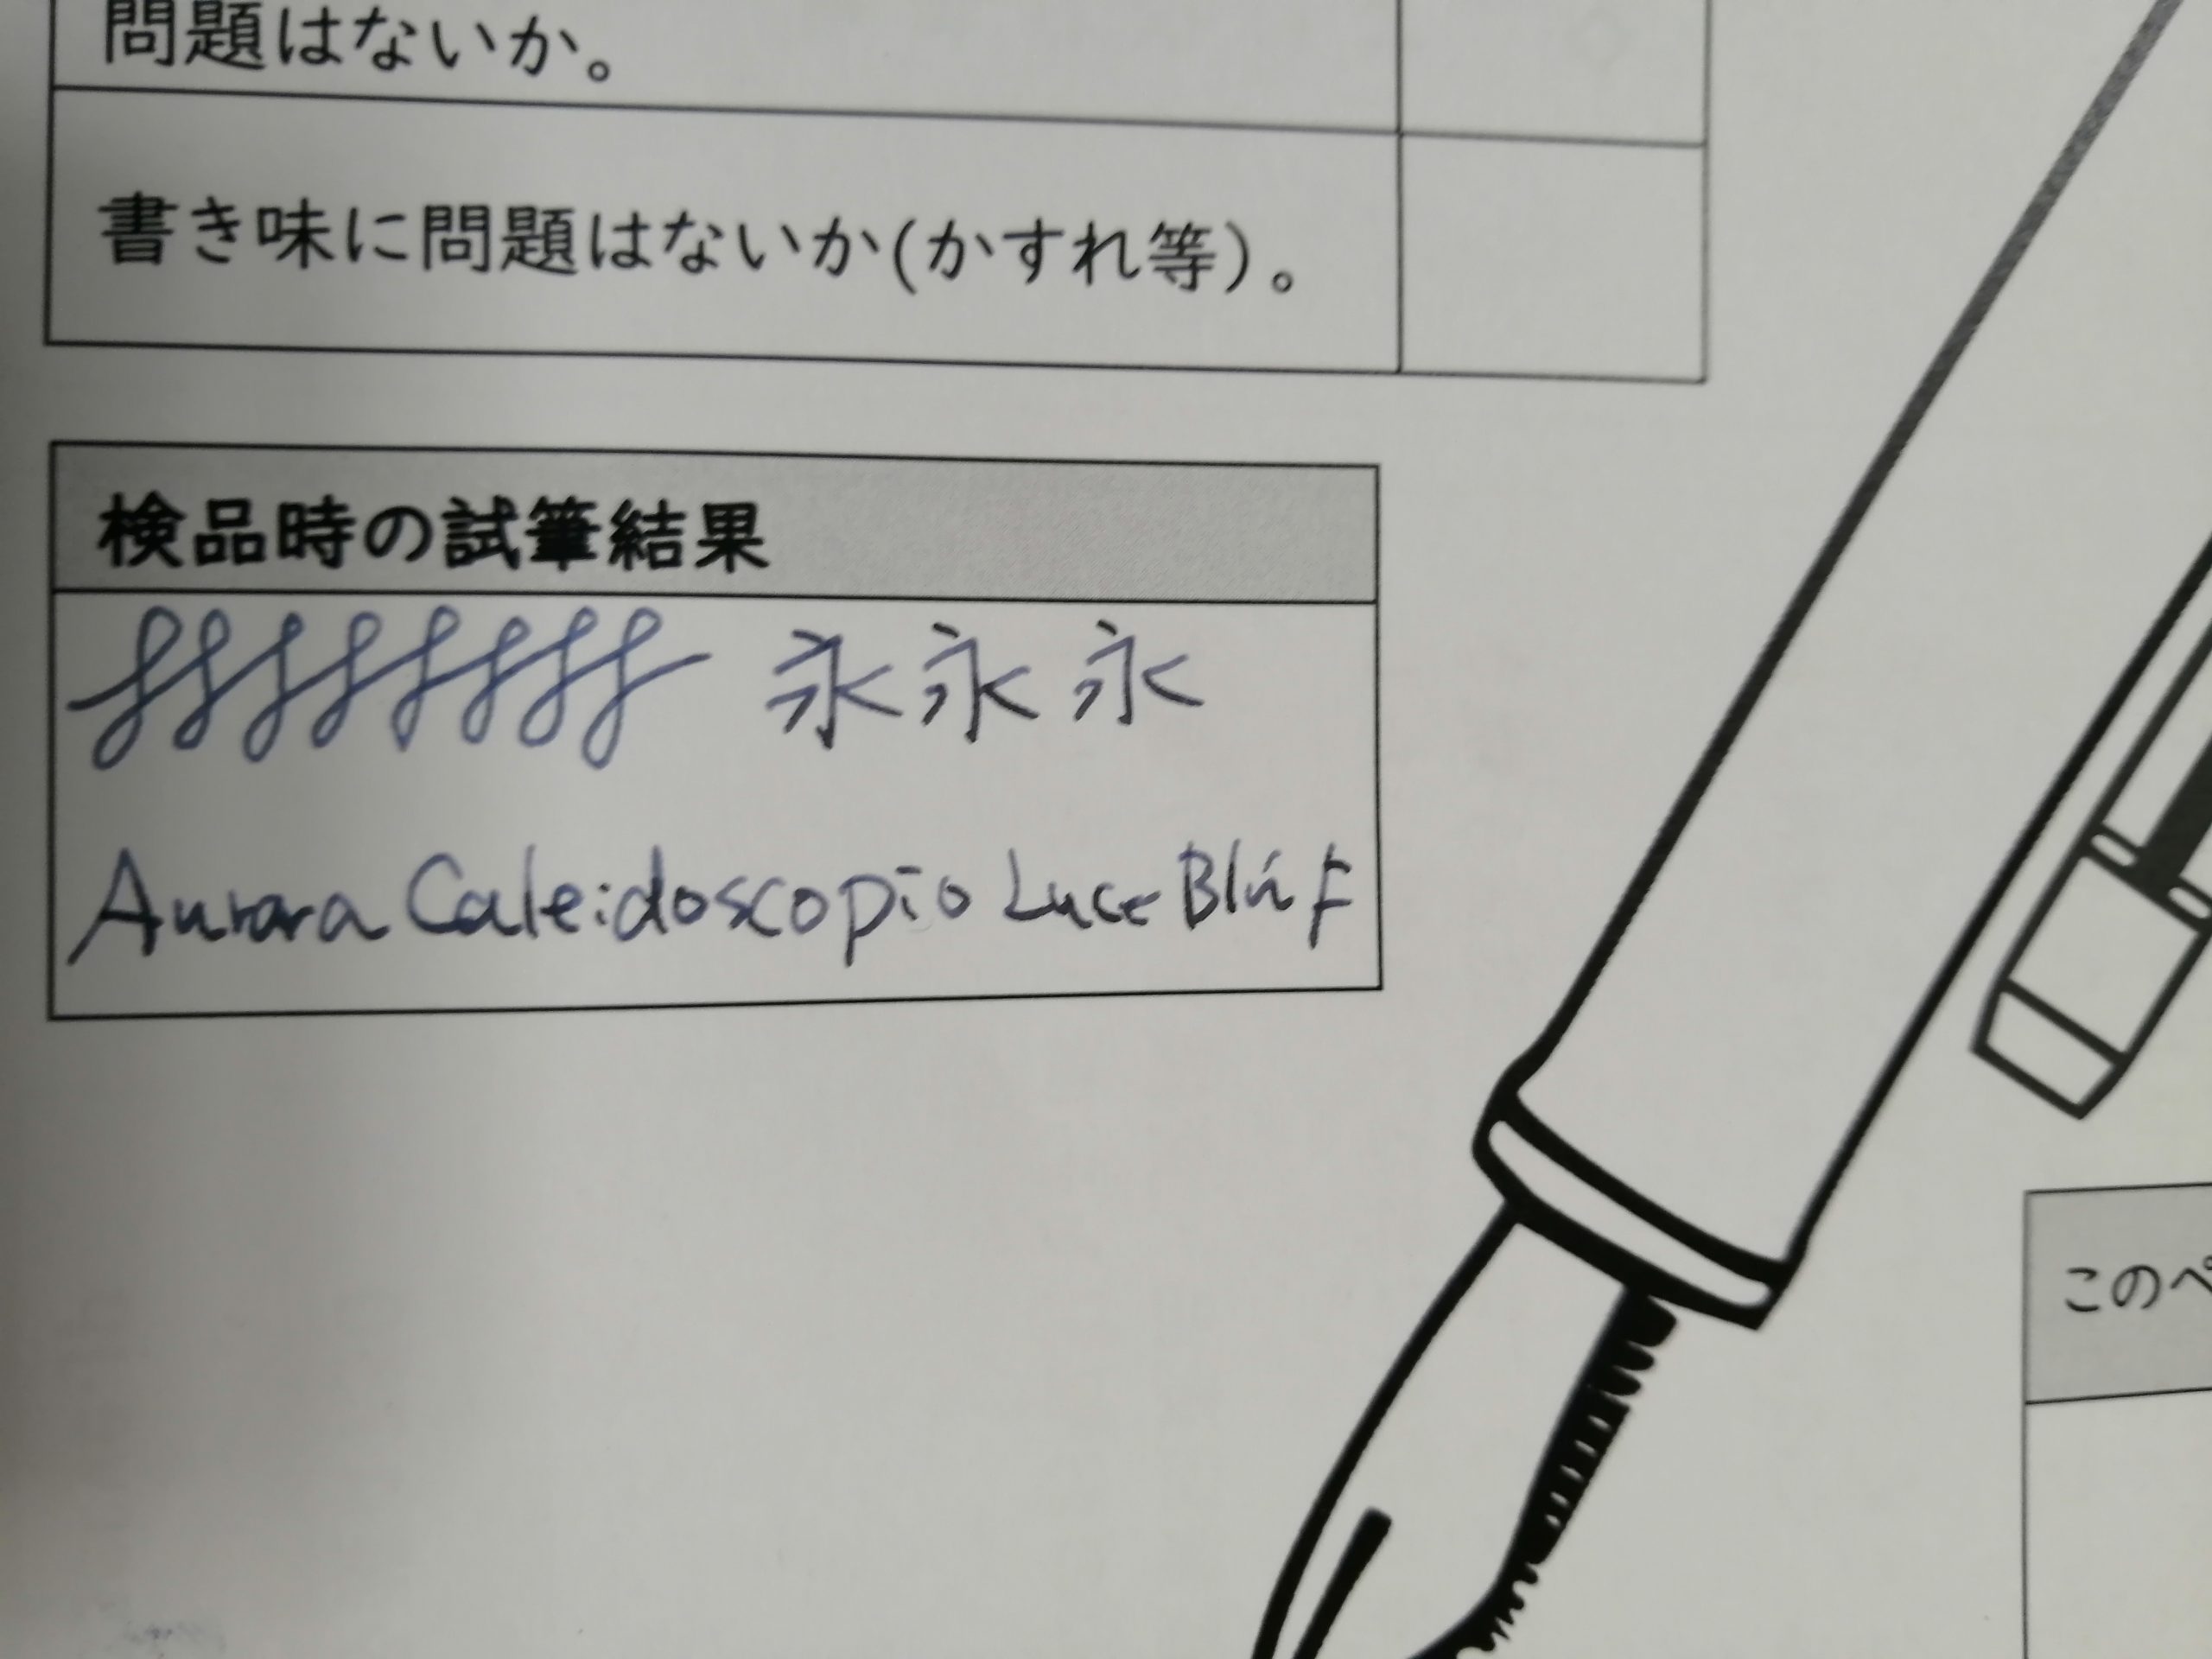 問題はないか。
書き味に問題はないか(かすれ等)。
検品時の試筆結果
永永永
Aurora Caleidoscopio Luce Blú F
このペ